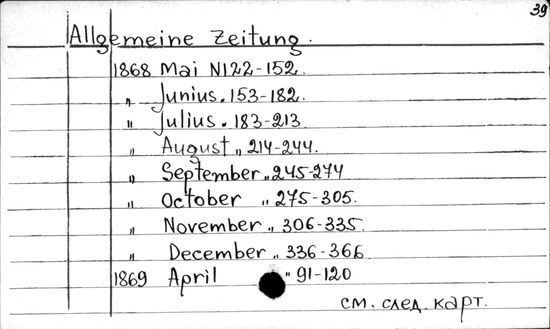 39
Allgemeine Zeitung.
1868 Mai N122-152.
„ Junius. 153-182.
„ Julius. 183-213
„ August „ 214-244.
„ September „ 245-274
„ October „ 275-305.
„ November „ 306-335.
„ December „ 336-366
1869 April „ 91-120
см. след. карт.